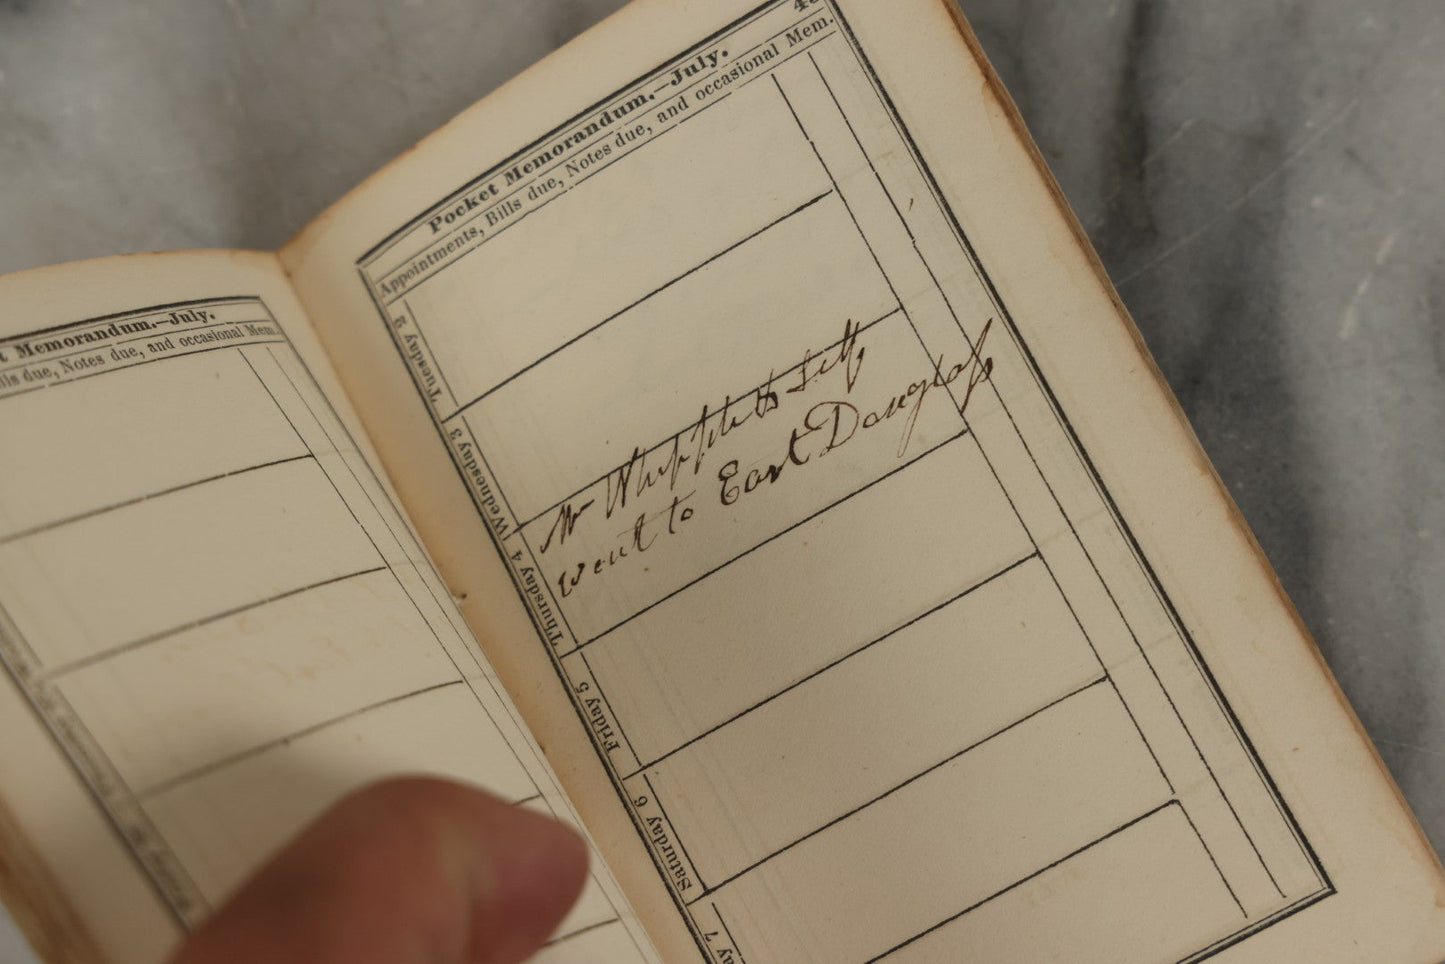 t Memorandum.—July.
ills due, Notes due, and occasional Mem.
Pocket Memorandum.—July.
Appointments, Bills due, Notes due, and occasional Mem.
Tuesday 2
Wednesday 3
Thursday 4
Mr Whipple & Self
went to East Douglass
Friday 5
Saturday 6
ay 7